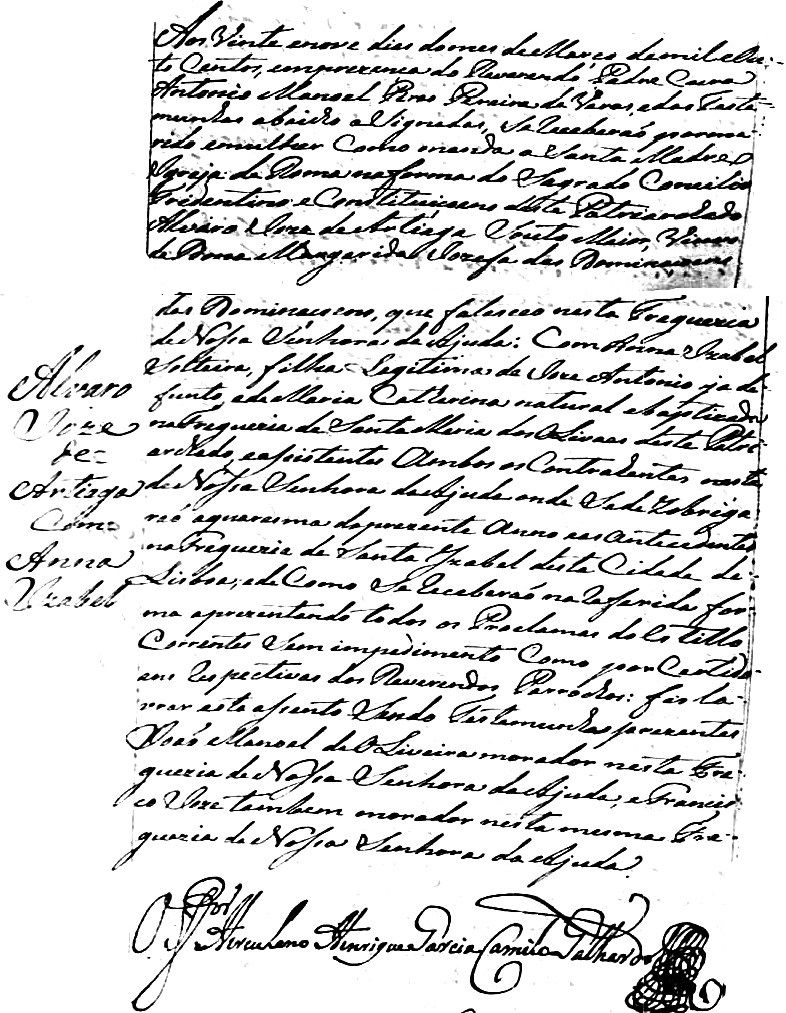 Aos Vinte enove dias domes de Março demil eOu-
to Centos, emprezença do Reverendo Padre Coeva
Antonio Manoel Pires Pereira de Veras, edas Teste-
munhas abaicho aSignadas, Se Receberaõ porma-
rido emulher Como manda a Santa Madre
Igreja de Roma naforma do Sagrado Concilio
Tridentino e Constituicoens deste Patriarchado
Alvaro Joze de Artiaga Souto Maior, Viuvo
de Dona Margarida Jozefa das Dominaçoens
das Dominaçoens, que faleceo nesta Freguezia
de Nossa Senhora da Ajuda: Com Anna Izabel
Solteira, filha Legitima de Joze Antonio ja de-
funto, ede Maria Catherina natural ebaptizada
na Freguezia de Santa Maria dos Olivaes deste Patri-
archado, eassistentes Ambos os Contrahentes nesta
de Nossa Senhora da Ajuda onde Se de Zobriga
raõ aquaresma doprezente Anno eas antecedentes
na Freguezia de Santa Izabel desta Cidade de
Lisboa; ede Como Se Receberaõ na Referida for-
ma aprezentando todos os Proclamas do Estillo
Correntes Sem impedimento Como por Certido-
ens Respectivas dos Reverendos Parrochos: fis la-
vrar este assento Sendo Testamunhas prezentes
Joaõ Manoel de OLiveira morador nesta Fre-
guezia de Nossa Senhora da Ajuda, e Francis-
co Joze tambem morador nesta mesma Fre-
guezia de Nossa Senhora da Ajuda.
Alvaro
Joze
de
Artiaga
Com
Anna
Izabel
O Pror Herculano Henrique Garcia Camilo Galhardo